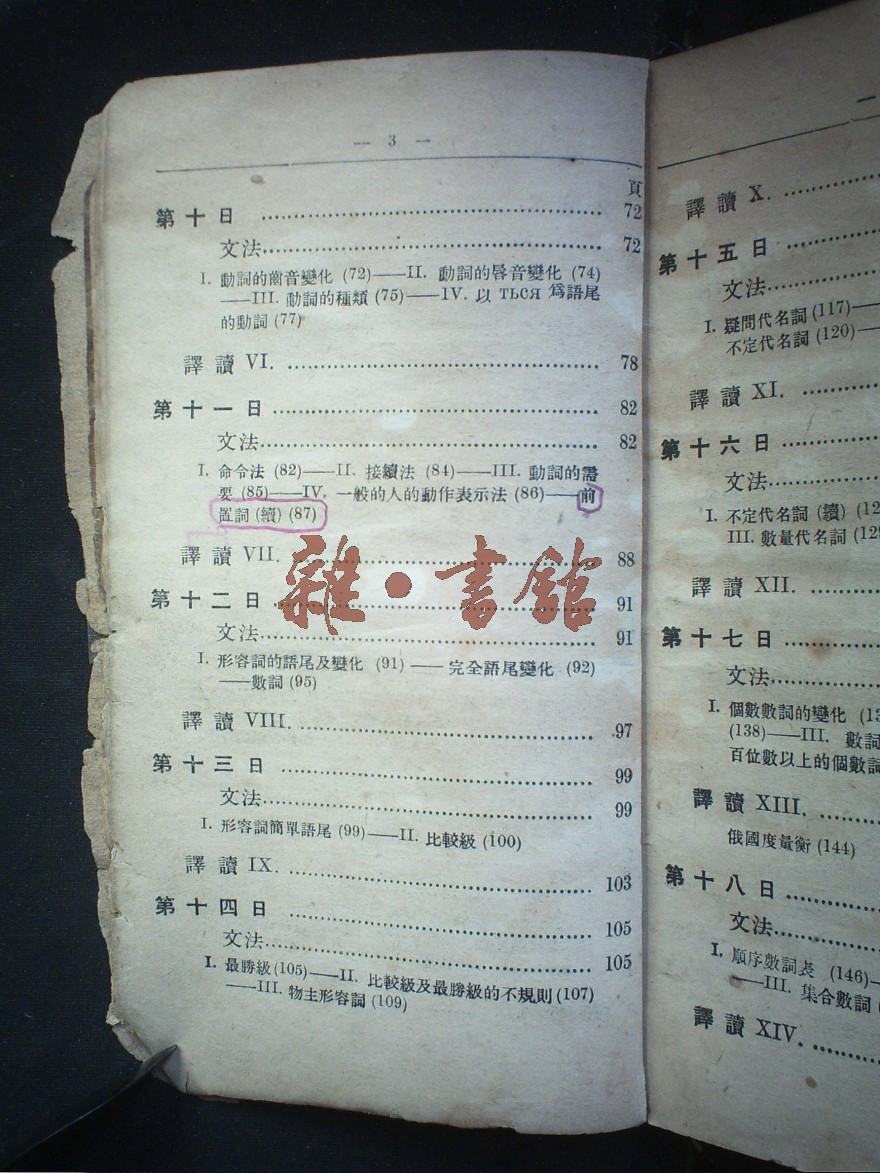 — 3 —
頁
第十日 ……… 72
文法 ……… 72
I. 動詞的齒音變化 (72)——II. 動詞的唇音變化 (74)
——III. 動詞的種類 (75)——IV. 以 ться 爲語尾
的動詞 (77)
譯讀 VI. ……… 78
第十一日 ……… 82
文法 ……… 82
I. 命令法 (82)——II. 接續法 (84)——III. 動詞的需
要 (85)——IV. 一般的人的動作表示法 (86)——前
置詞 (續) (87)
譯讀 VII. ……… 88
第十二日 ……… 91
文法 ……… 91
I. 形容詞的語尾及變化 (91)——完全語尾變化 (92)
——數詞 (95)
譯讀 VIII. ……… 97
第十三日 ……… 99
文法 ……… 99
I. 形容詞簡單語尾 (99)——II. 比較級 (100)
譯讀 IX. ……… 103
第十四日 ……… 105
文法 ……… 105
I. 最勝級 (105)——II. 比較級及最勝級的不規則 (107)
——III. 物主形容詞 (109)
雜·書館
譯讀 X. ………
第十五日 ………
文法 ………
I. 疑問代名詞 (117)——
不定代名詞 (120)——
譯讀 XI. ………
第十六日 ………
文法 ………
I. 不定代名詞 (續)
III. 數量代名詞
譯讀 XII. ………
第十七日 ………
文法 ………
I. 個數數詞的變化
(138)——III. 數詞
百位數以上的個數詞
譯讀 XIII. ………
俄國度量衡 (144)
第十八日 ………
文法 ………
I. 順序數詞表 (146)——
——III. 集合數詞
譯讀 XIV. ………